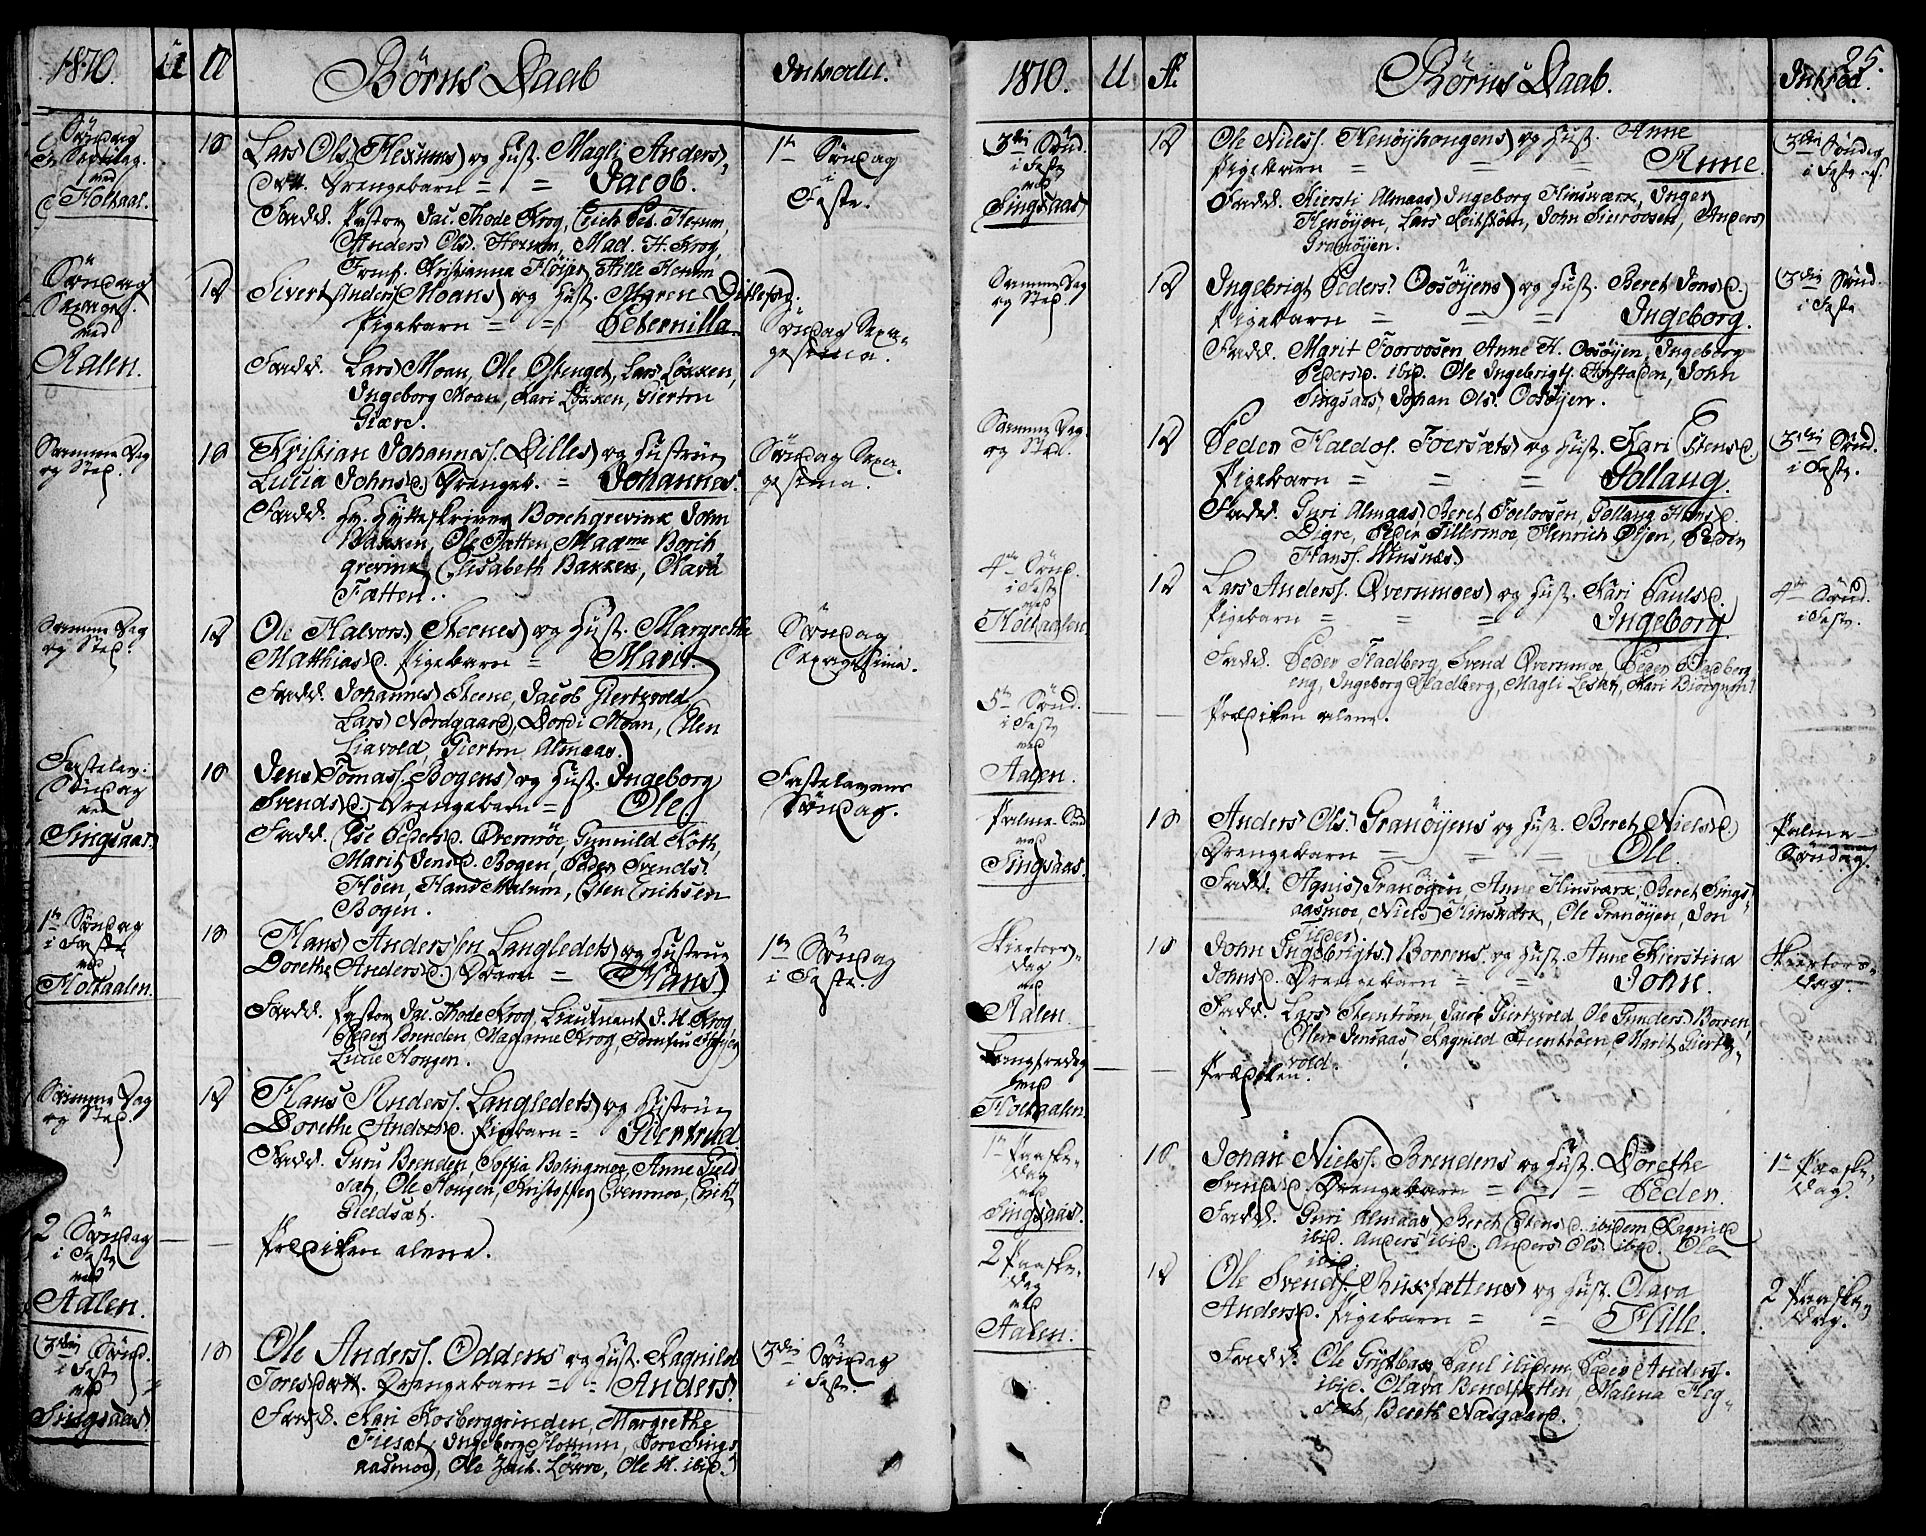 1810. U Æ Børns Daab Introduc.
Søndag
Septuag.
ved
Holtaal.
1 D Lars Ols. Hexums og Hust. Magli Anders-
Dott. Drengebarn = = Jacob.
Fadd. Pastor Jac. Thode Krog, Erich Pet. Hexum,
Anders Ols. Hexum, Mad. H. Krog,
Jomf. Kristianna Høijer, Sille Hexum
1te Søndag
i
Faste.
Søndag
Sexages.
ved
Aalen.
1 P Sivert Anders. Moans og Hust. Maren Ditlefsd.
Pigebarn = = Peternilla
Fadd. Lars Moan, Ole Ostenget, Lars Løkken,
Ingeborg Moan, Kari Løkken, Giertru
Giære.
Søndag Sexa-
gesima.
Samme Dag
og Sted.
1 D Kristian Johanness. Dilles og Hustrue
Lucia Johnsd. Drengeb. = Johannes.
Fadd. Hr. Hytteskriver Borchgrevink John
Bakken, Ole Fætten, Madme Borch
grevink Elisabeth Bakken, Olava
Fætten.
Søndag Sexa-
gesima.
Samme Dag
og Sted.
1 P Ole Halvors. Steenes og Hust. Margrethe
Matthiasd. Pigebarn = Marit.
Fadd. Johannes Steene, Jacob Giertzvold
Lars Nordgaard, Dordi Moan, Elen
Liavold, Giertru Almaas.
Søndag
Sexagesima.
Fastelav.
Søndag
ved
Singsaas.
1 D Jens Tomass. Bogens og Hust. Ingeborg
Svendsd. Drengebarn = Ole.
Fadd. Else Pedersd. Øvermoe, Gunnild Koth,
Marit Jensd. Bogen, Peder Svends.
Høen, Hans Malum, Esten Erichsen
Bogen.
Fastelavens
Søndag.
1te Søndag
i Faste
ved
Holtaalen.
1 D Hans Anderssen Langledets og Hustrue
Dorethe Andersd. Dreng = Hans.
Fadd. Pastor Jac. Thode Krog, Lieutnant J. H. Krog,
Peder Brenden, Madame Krog, Jomfru Høijer
Lucie Hougen.
1te Søndag
i Faste.
Samme Dag
og Sted.
1 P Hans Anderss. Langledets og Hustrue
Dorethe Andersd. Pigebarn = Giertrud
Fadd. Guru Brenden, Soffia Bolingmoe, Anne Gield
sæt, Ole Hougen, Kristopher Evenmoe, Erich
Gieldsæt.
2 Søndag
i Faste
ved
Aalen.
Prediken alene.
3die Sønd.
i Faste
ved
Singsaas
1 D Ole Anderss. Oddens og Hust. Ragnild
Toresdott. Drengebarn = = Anders.
Fadd. Kari Kosberggrinden, Margrethe
Fiesæt, Ingeborg Flottum, Tore Sings
aasmoe, Ole Zach. Løvre, Ole H. ibid.
3die Søndag
i Faste.
1810. U Æ. Børns Daab. Introd. 25.
3die Sønd.
i Faste
ved
Singsaas
1 P Ole Nielss. Henøyhougens og Hust. Anne
Pigebarn = = Anne.
Fadd. Kiersti Almaas, Ingeborg Hinsværk, Inger
Henøyen, Lars Reitstøen, John Sieroosen, Anders
Granøyen.
3die Søndag
i Fasten.
Samme Dag
og Sted
1 P Ingebrigt Peders. Oosøyens og Hust. Beret Jonsd.
Pigebarn = = = Ingeborg.
Fadd. Marit Foeroosen, Anne H. Oosøyen, Ingeborg
Pedersd. ibid. Ole Ingebrigts. Havstaden, John
Singsaas, Johan Ols. Oosøyen.
3die Sønd.
i Faste
Samme Dag
og Sted.
1 P Peder Haldos. Foersæts og Hust. Kari Estensd.
Pigebarn = = = Gollaug.
Fadd. Guri Almaas, Beret Foeloosen, Gollaug Hansd.
Digre, Peder Tillermoe, Hinrich Øyen, Peder
Hanss. Winsnæs.
3die Sønd.
i Faste.
4de Sønd.
i Faste
ved
Holtaalen
1 P Lars Anderss. Øvernmoes og Hust. Kari Paulsd.
Pigebarn = = = Ingeborg
Fadd. Peder Fladberg, Svend Øvernmoe, Peder Fladberg
eng, Ingeborg Fladberg, Magli Lesset, Kari
4de Sønd.
i Faste.
5te Sønd.
i Faste
ved
Aalen.
Prediken alene.
Palme-Sønd
ved
Singsaas.
1 D Anders Ols. Granøyens og Hust. Beret Nielsd.
Drengebarn = = = Ole.
Fadd. Agnis Granøyen, Anne Hinsværk, Beret Sings-
aasmoe, Niels Hinsværk, Ole Granøyen, Jon
Tilder.
Palme-
Søndag.
Skiertors-
dag
ved
Aalen.
1 D John Ingebrigts. Borrens og Hust. Anne Kierstina
Johnsd. Drengebarn = = John.
Fadd. Lars Steentrøen, Jacob Giertzvold, Ole Gunders. Borren,
Elen Jensaas, Ragnild Steentrøen, Marit Giertz-
vold.
Skiertors-
dag.
Langfredag
ved
Holtaalen
Prediken.
1te Paaske-
dag
ved
Singsaas.
1 D Johan Nielss. Brendens og Hust. Dorethe
Svendsd. Drengebarn = = = Peder.
Fadd. Guri Almaas, Beret Estensd. ibidem, Ragnild
ibid. Anders ibid. Anders Ols. ibid. Ole
ibid.
1te Paaske-
dag.
2 Paaske-
dag
ved
Aalen.
1 P Ole Svends. Ruksættens og Hust. Olava
Andersd. Pigebarn = = Sille.
Fadd. Ole Grytbak Paul ibidem, Peder Anders.
ibid. Olava Bendsætten, Malena Heg-
sæt, Bereth Næsgaard.
2 Paaske-
dag.